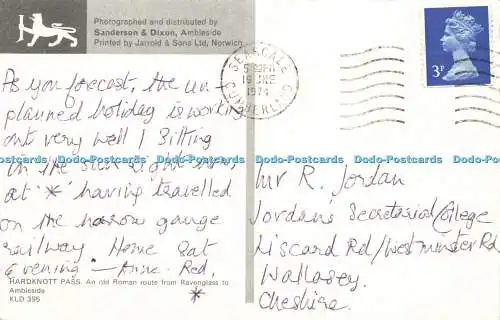 Photographed and distributed by
Sanderson & Dixon, Ambleside
Printed by Jarrold & Sons Ltd, Norwich
SEASCALE
CUMBERLAND
19 JNE
1974
3P
As you forecast, the un-
planned holiday is working
out very well! Sitting
in the sun right now,
at '*' having travelled
on the narrow gauge
railway. Home Sat
Evening. — Anne Red.
Mr R. Jordan
Jordan's Secretarial College
Liscard Rd/Westminster Rd
Wallasey.
Cheshire.
HARDKNOTT PASS. An old Roman route from Ravenglass to
Ambleside
KLD 395
*
Dodo-Postcards Dodo-Postcards Dodo-Postcards Dodo-Postcards Dodo-Postcards Dodo-Postcards